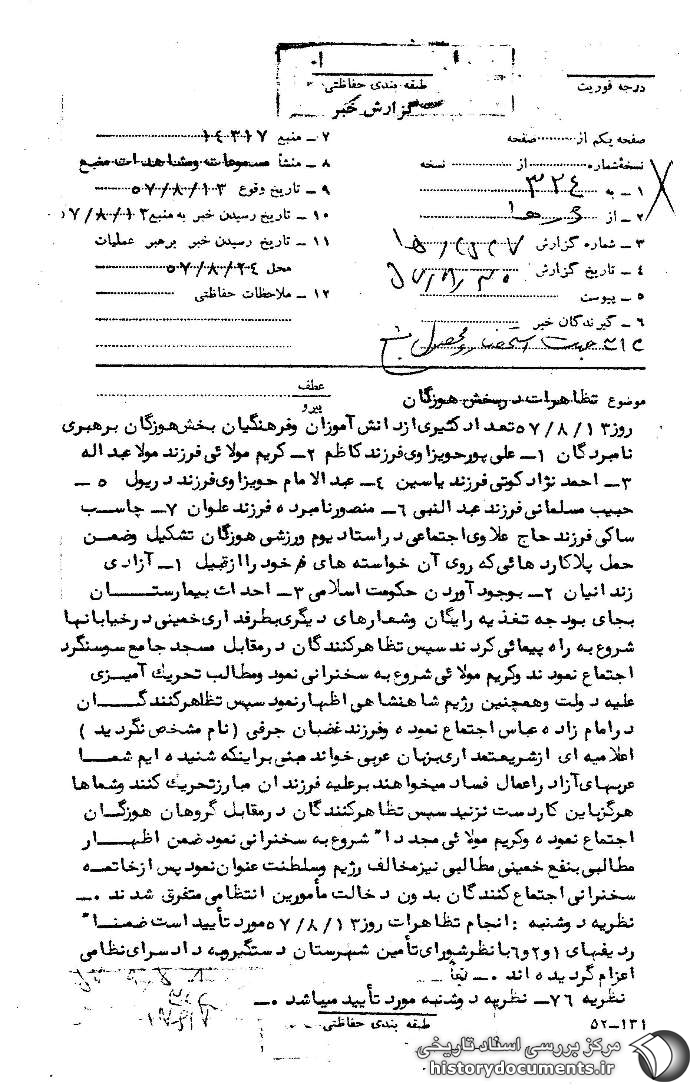 درجه فوریت
طبقه بندی حفاظتی
گزارش خبر
صفحه یکم از ........ صفحه
نسخه شماره ........ از ........ نسخه
۱ــ به ۳۲۴
۲ــ از
۳ــ شماره گزارش
۴ــ تاریخ گزارش
۵ــ پیوست
۶ــ گیرندگان خبر
۷ــ منبع ۱۴۳۱۷
۸ــ منشأ مسموعات ومشاهدات منبع
۹ــ تاریخ وقوع ۵۷/۸/۱۳
۱۰ــ تاریخ رسیدن خبر به منبع ۵۷/۸/۱۳
۱۱ــ تاریخ رسیدن خبر برهبر عملیات
محل ۵۷/۸/۲۴
۱۲ــ ملاحظات حفاظتی
موضوع تظاهرات دربخش هوزگان
عطف
پیرو
روز ۵۷/۸/۱۳ تعداد کثیری از دانش آموزان وفرهنگیان بخش هوزگان برهبری
نامبردگان ۱ــ علی پورحویزاوی فرزند کاظم ۲ــ کریم مولائی فرزند مولا عبد اله
۳ــ احمد نژاد کوتی فرزند یاسین ۴ــ عبد الامام حویزاوی فرزند دریول ۵ــ
حبیب مسلمانی فرزند عبد النبی ۶ــ منصور نامبرده فرزند علوان ۷ــ چاسب
ساکی فرزند حاج علاوی اجتماعی در استادیوم ورزشی هوزگان تشکیل وضمن
حمل پلاکارد هائی که روی آن خواسته های خود را ازقبیل ۱ــ آزادی
زندانیان ۲ــ بوجود آوردن حکومت اسلامی ۳ــ احداث بیمارستان
بجای بودجه تغذیه رایگان وشعارهای دیگری بطرفداری خمینی درخیابانها
شروع به راه پیمائی کردند سپس تظاهرکنندگان درمقابل مسجد جامع سوسنگرد
اجتماع نمودند وکریم مولائی شروع به سخنرانی نمود ومطالب تحریک آمیزی
علیه دولت وهمچنین رژیم شاهنشاهی اظهار نمود سپس تظاهرکنندگان
درامام زاده عباس اجتماع نموده وفرزند غضبان جرفی ( نام مشخص نگردید )
اعلامیه ای ازشریعتمداری بزبان عربی خواند مبنی براینکه شنیده ایم شما
عربهای آزاد را عمال فساد میخواهند برعلیه فرزندان مبارز تحریک کنند وشماها
هرگز باین کار دست نزنید سپس تظاهرکنندگان درمقابل گروهان هوزگان
اجتماع نموده وکریم مولائی مجدداً شروع به سخنرانی نمود ضمن اظهار
مطالبی بنفع خمینی مطالبی نیز مخالف رژیم وسلطنت عنوان نمود پس ازخاتمه
سخنرانی اجتماع کنندگان بدون دخالت مأمورین انتظامی متفرق شدند .ــ
نظریه دوشنبه : انجام تظاهرات روز ۵۷/۸/۱۳ مورد تأیید است ضمناً
ردیفهای ۱ و ۲ و ۶ با نظر شورای تأمین شهرستان دستگیر وبه دادسرای نظامی
اعزام گردیده اند .ــ
نظریه ۷۶ــ نظریه دوشنبه مورد تأیید میباشد .ــ
طبقه بندی حفاظتی
۵۲ــ۱۳۱
مرکز بررسی اسناد تاریخی
historydocuments.ir